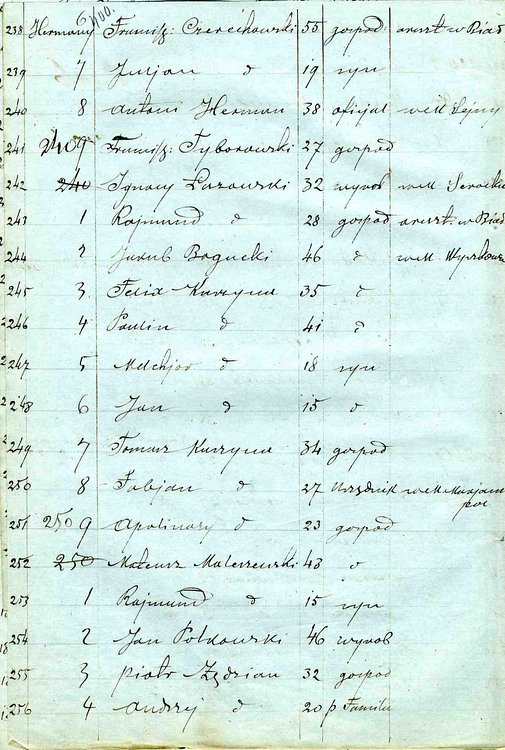 238 Hermany 6 Francisz: Czerechowski 55 gospod: areszt w Biał
239 7 Juljan d 19 syn
240 8 Antoni Herman 38 oficjal wek Sejny
241 2409 Francisz: Tyborowski 27 gospod
242 240 Ignacy Łazowski 32 wyrob wek Serock
243 1 Rajmund d 28 gospod areszt: w Biał
244 2 Jakub Bogucki 46 d wek Wyszkow
245 3 Felix Kurzyna 35 d
246 4 Paulin d 41 d
247 5 Melchjor d 18 syn
248 6 Jan d 15 d
249 7 Tomasz Kurzyna 34 gospod
250 8 Fabjan d 27 Urzędnik wek Marjam
pol
251 250 9 Apolinary d 23 gospod
252 250 Mateusz Maleszewski 43 d
253 1 Rajmund d 15 syn
254 2 Jan Polkowski 46 wyrob
255 3 Piotr Zędzian 32 gospod
256 4 Andrzej d 20 p Familii